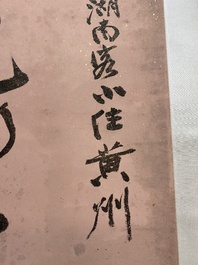 湖南客小住黄州